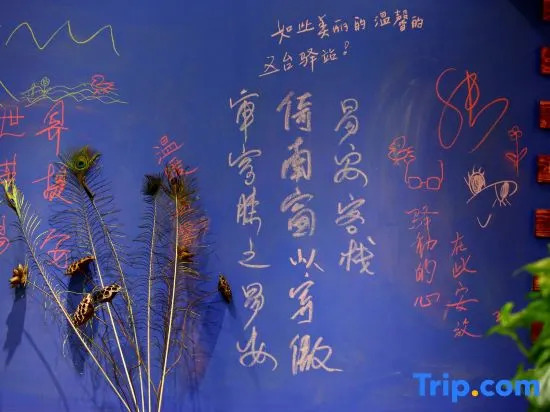 如此美丽的温馨的
五台驿站!
易安客栈
倚南窗以寄傲
审容膝之易安
在此安放
驿动的心
温
Trip.com